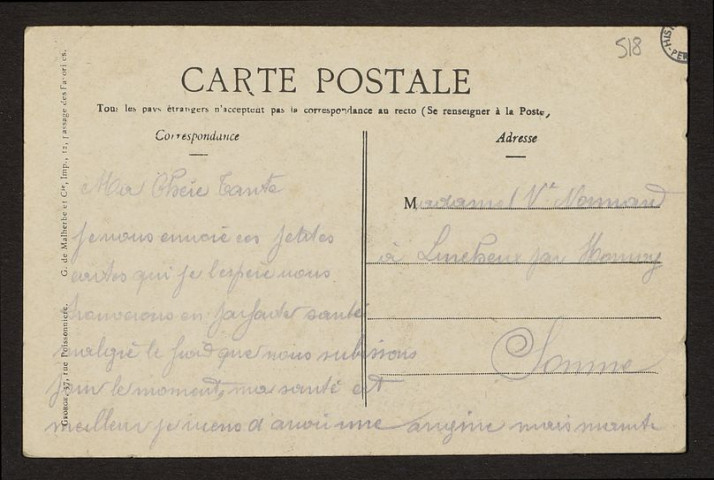 518
CARTE POSTALE
Tous les pays étrangers n'acceptent pas la correspondance au recto (Se renseigner à la Poste,
Correspondance
Adresse
Ma Chère Tante
je vous envoie ces petites
cartes qui je l'espère vous
trouverons en parfaite santé
malgré le froid que nous subissons
pour le moment, ma santé est
meilleur je viens d'avoir une angine mais mainte
Madame Vve Normand
à par
Somme
G. de Malherbe et Cie, Imp., 12, passage des Favorites.
George, 37, rue Poissonnière.